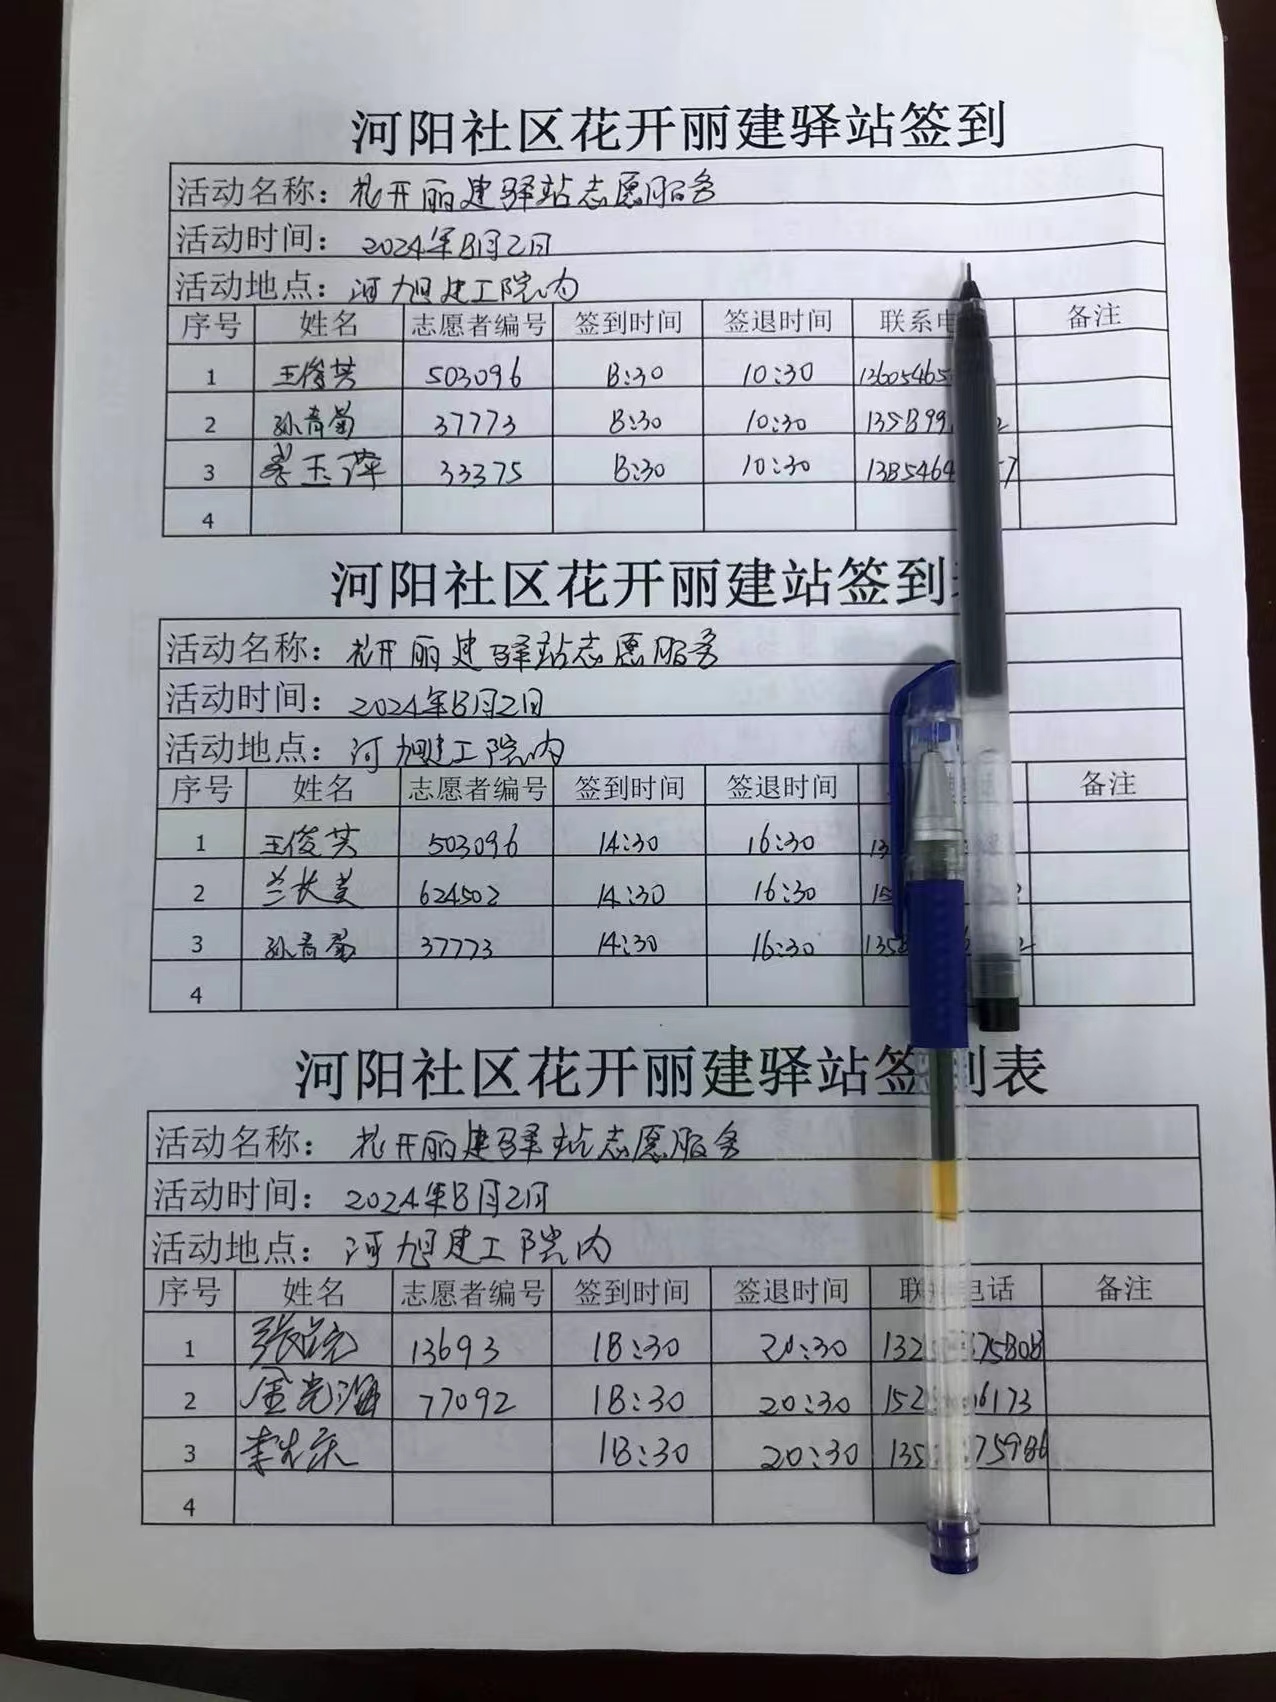 河阳社区花开丽建驿站签到
活动名称：花开丽建驿站志愿服务
活动时间：2024年8月2日
活动地点：河旭建工院内
序号 姓名 志愿者编号 签到时间 签退时间 联系电 备注
1 王俊芙 503096 8:30 10:30 13605465
2 孙青菊 37773 8:30 10:30 135899
3 玉萍 33375 8:30 10:30 1385464 7
4
河阳社区花开丽建站签到
活动名称：花开丽建驿站志愿服务
活动时间：2024年8月2日
活动地点：河旭建工院内
序号 姓名 志愿者编号 签到时间 签退时间 备注
1 王俊芙 503096 14:30 16:30 13
2 兰长美 624502 14:30 16:30 15
3 孙青菊 37773 14:30 16:30 135
4
河阳社区花开丽建驿站签到表
活动名称：花开丽建驿站志愿服务
活动时间：2024年8月2日
活动地点：河旭建工院内
序号 姓名 志愿者编号 签到时间 签退时间 联 电话 备注
1 13693 18:30 20:30 132 75808
2 金光海 77092 18:30 20:30 152 6173
3 18:30 20:30 135 75986
4